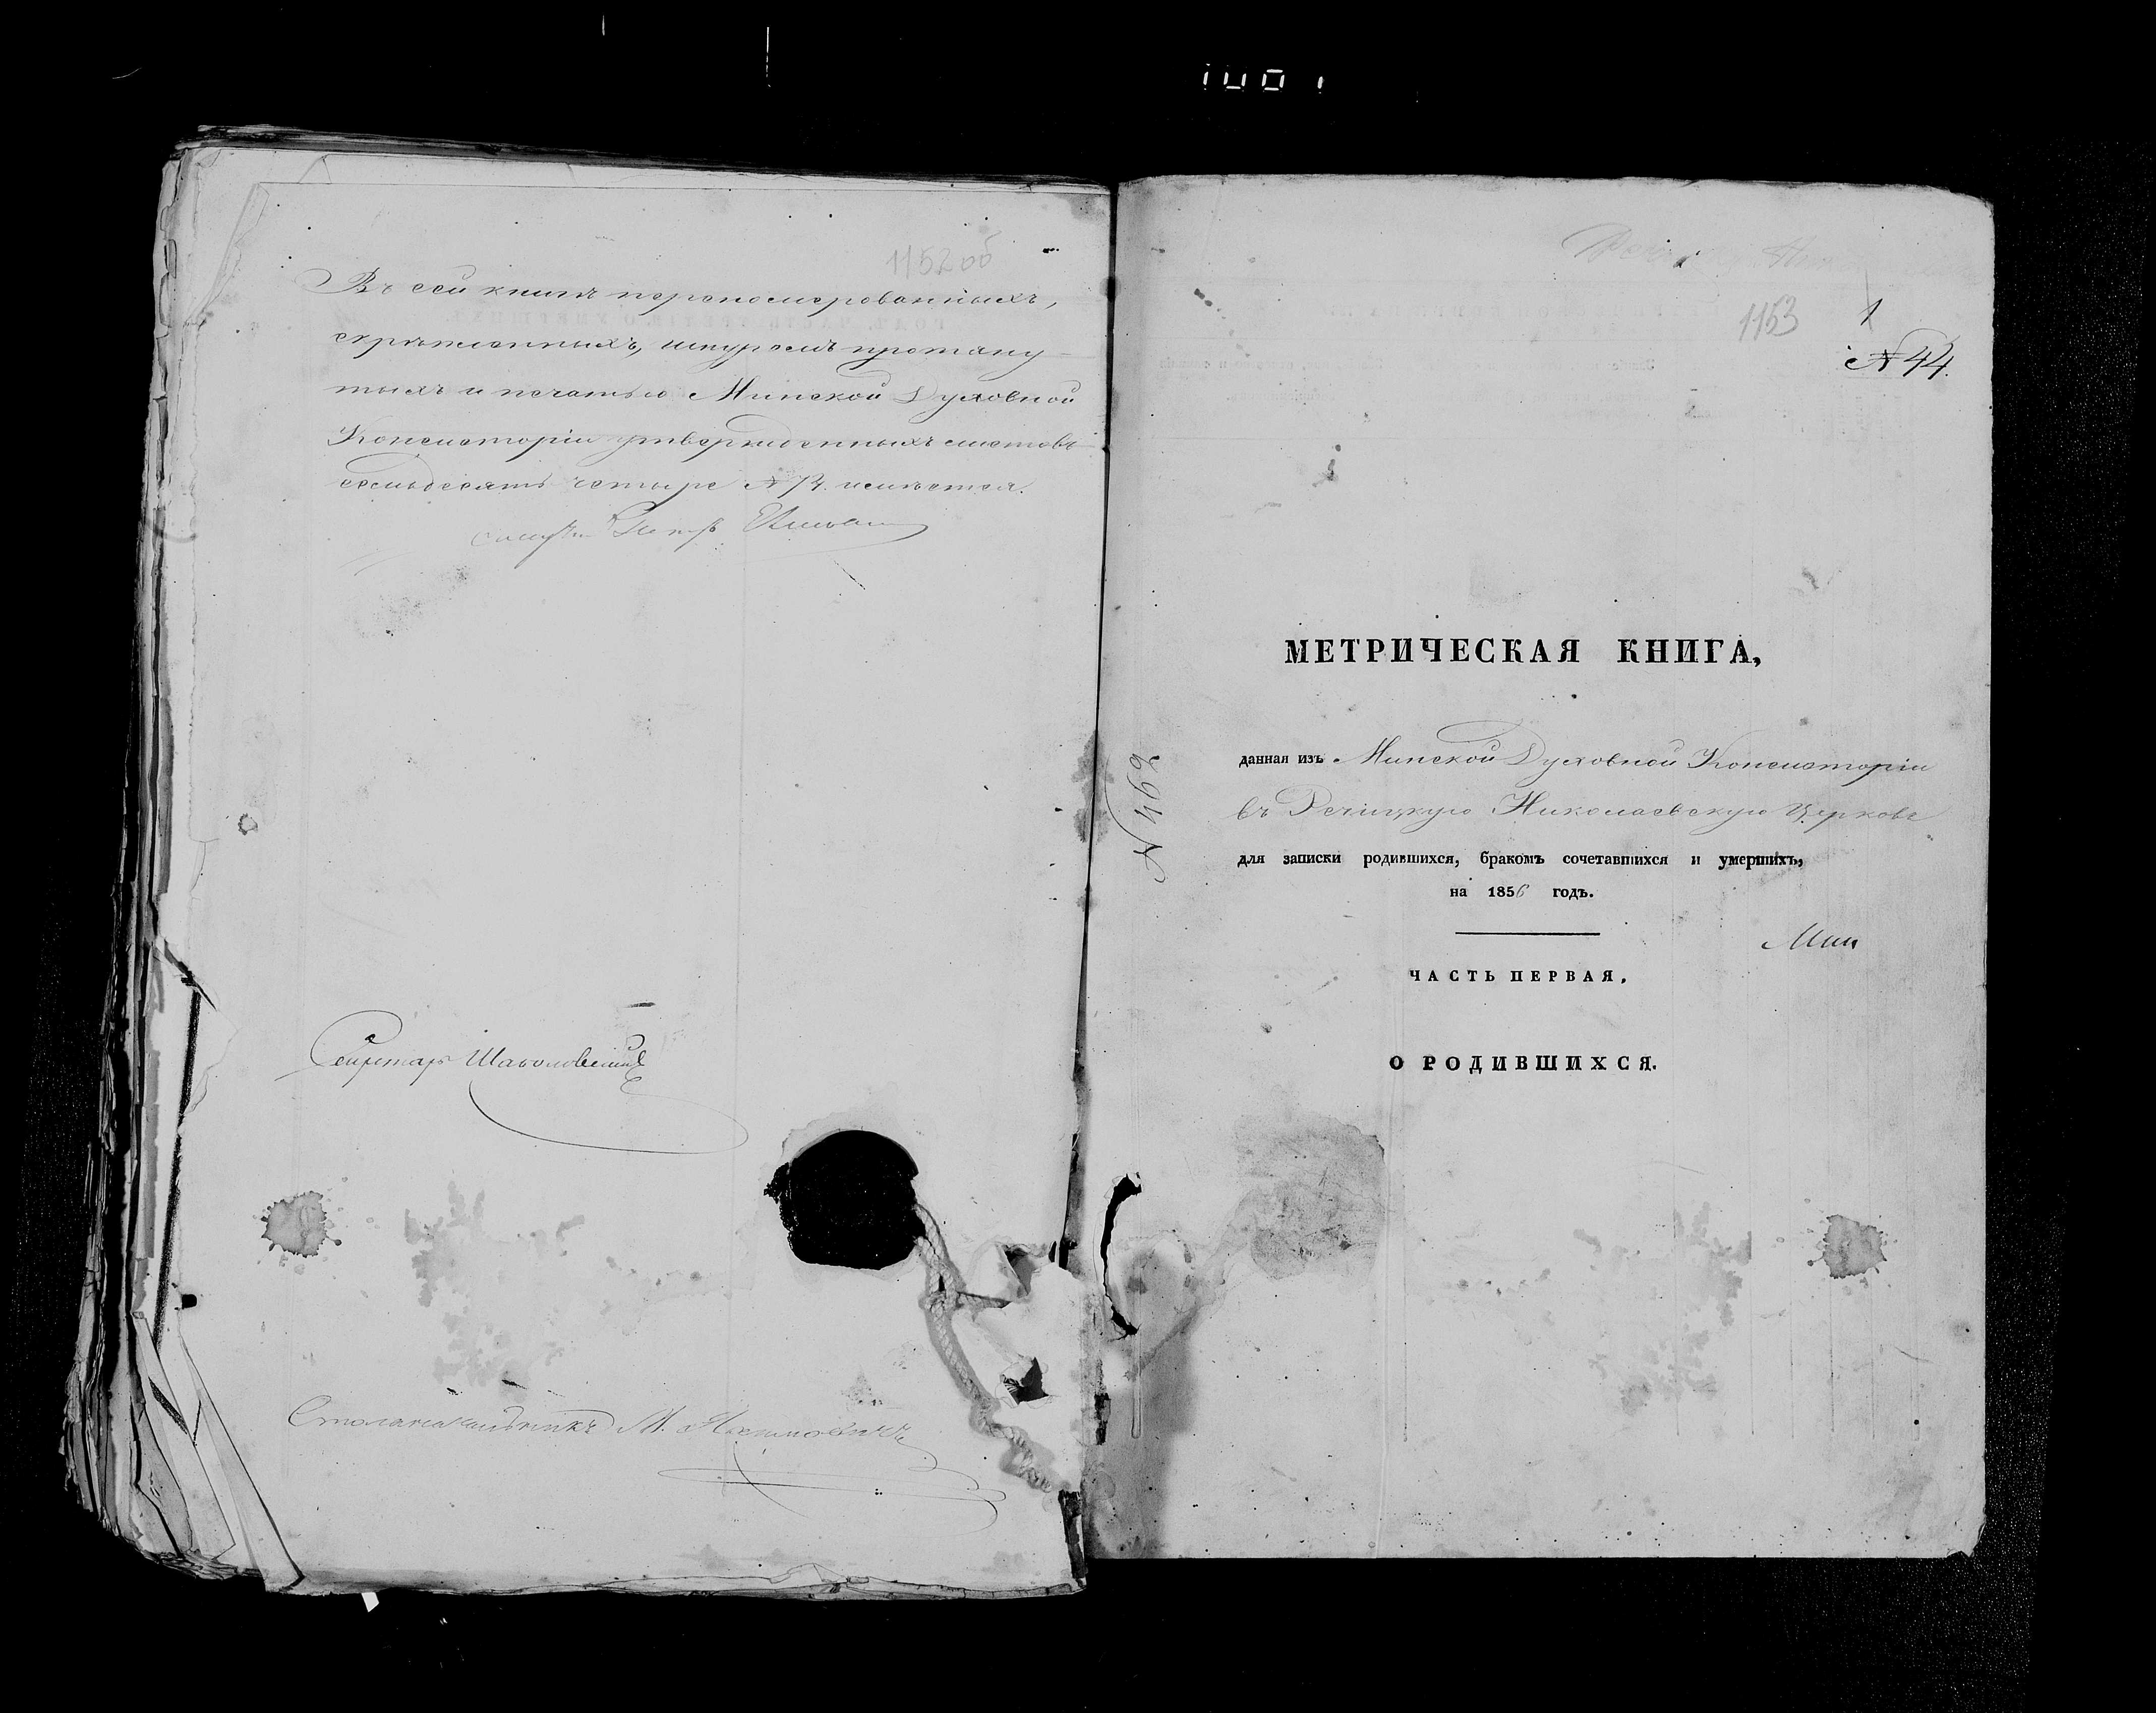 1152 об
Въ сей книгѣ перенумерованныхъ,
скрѣпленныхъ, шнуромъ протяну
тыхъ и печатью Минской Духовной
Консисторіи утвержденныхъ листовъ
семьдесятъ четыре № 74. имѣется.
Петръ
Секретарь
Столоначальникъ М.
1153
1
№ 44.
МЕТРИЧЕСКАЯ КНИГА,
данная изъ Минской Духовной Консисторіи
въ Рѣчицкую Николаевскую Церковь
для записки родившихся, бракомъ сочетавшихся и умершихъ,
на 1856 годъ.
Мин
ЧАСТЬ ПЕРВАЯ,
О РОДИВШИХСЯ.
№ 462